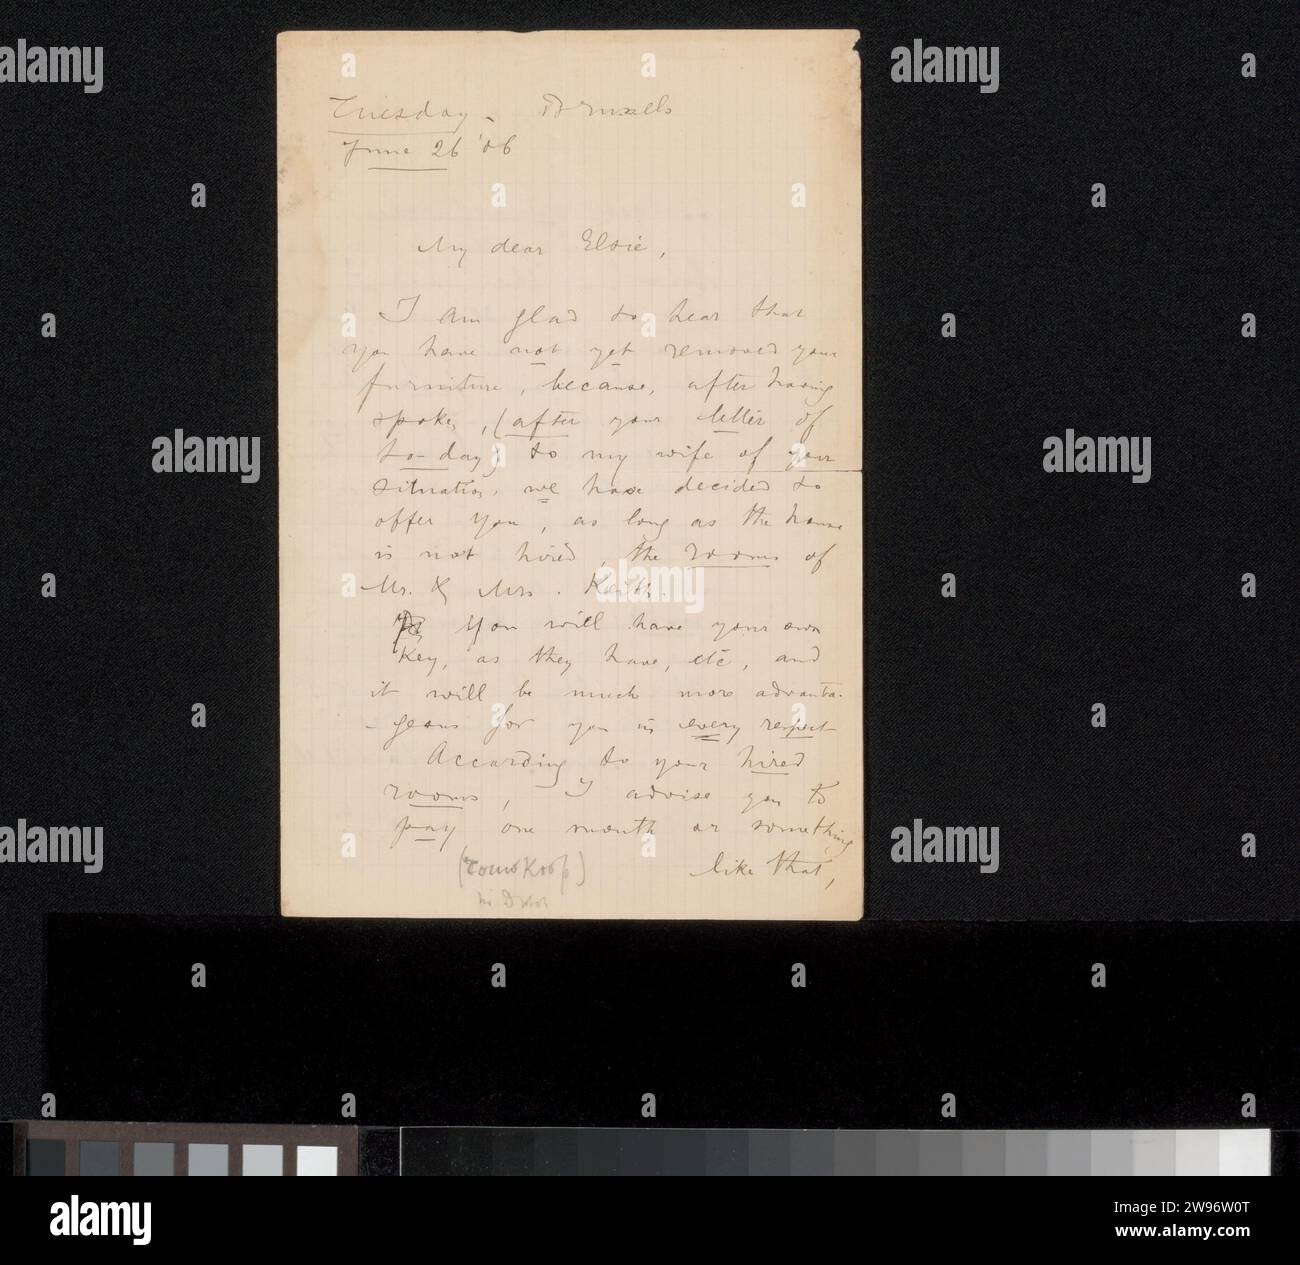 Tuesday - Brussels
June 26 '06
My dear Elsie,
I am glad to hear that
you have not yet removed your
furniture, because, after having
spoken, (after your letter of
to-day) to my wife of your
situation, we have decided to
offer you, as long as the house
is not hired, the rooms of
Mr. & Mrs. Keith.
You will have your own
key, as they have, etc, and
it will be much more advanta-
-geous for you in every respect
According to your hired
rooms, I advise you to
pay one month or something
like that,
alamy
Image ID: 2W96W0T
www.alamy.com